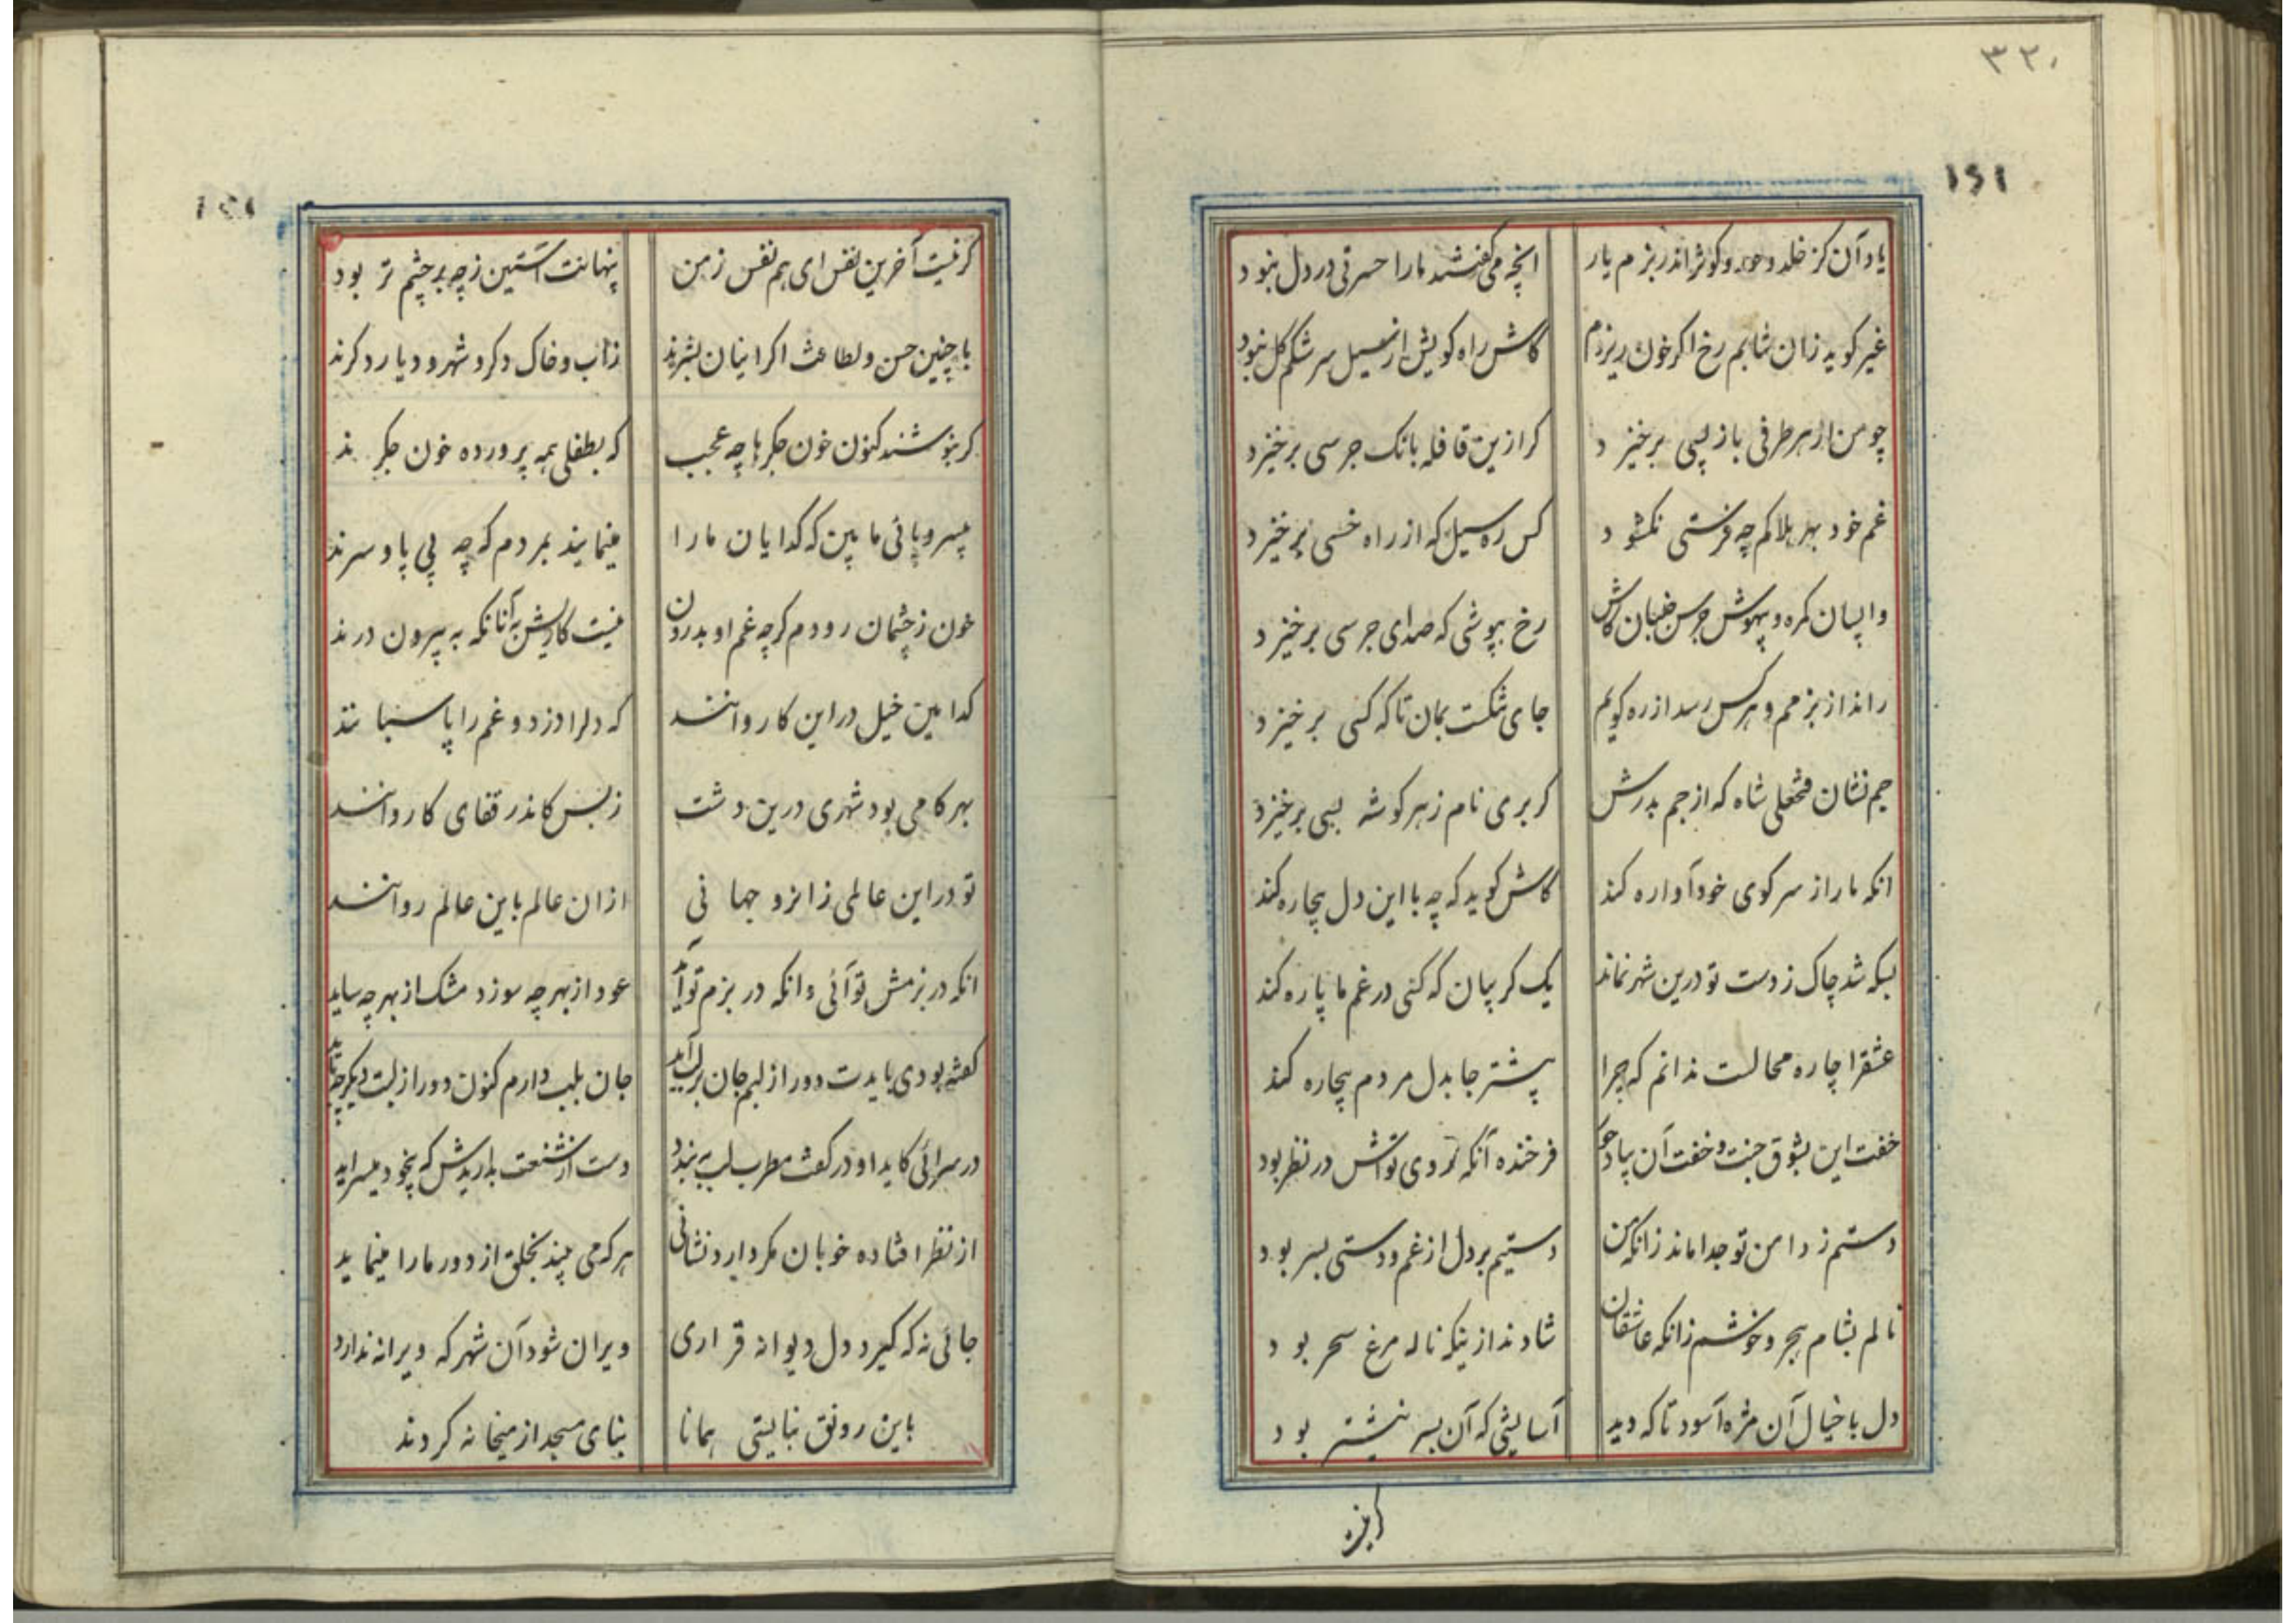 ۳۲۰
۱۶۱
یاد آن کز خلد و حور و کوثر اندر بزم یار
انچه می گفتند ما را حسرتی در دل نبود
غیر کوید زان نتابم رخ اکر خون ریزدم
کاش راه کویش از سیل سرشکم کل نبود
چو من از هر طرفی باز پسی برخیزد
کر ازین قافله بانک جرسی برخیزد
غم خود بهر هلاکم چه فرستی نکشود
کس ره سیل که از راه خسی برخیزد
واپسان کمره و بیهوش جرس جنبان کاش
رخ بپوشی که صدای جرسی برخیزد
راند از بزمم و هر کس رسد از ره کویم
جای تنکست بمان تا که کسی برخیزد
جم نشان فتحعلی شاه که از جم بدرش
کر بری نام ز هر کوشه بسی برخیزد
انکه ما را ز سر کوی خود آواره کند
کاش کوید که چه با این دل بیچاره کند
بسکه شد چاک ز دست تو درین شهر نماند
یک کریبان که کسی در غم ما پاره کند
عشقرا چاره محالست ندانم که چرا
بیشتر جا بدل مردم بیچاره کند
خفت این بشوق جنت و خفت آن بیاد حور
فرخنده آنکه روی تواش در نظر بود
دستم ز دامن تو جدا ماند زانکه من
دستیم بر دل از غم و دستی بسر بود
نالم بشام هجر و خوشم زانکه عاشقان
شادند از اینکه ناله مرغ سحر بود
دل با خیال آن مژه آسود تا که دید
آسایشی که آن بسر نیشتر بود
کر نیست
۱۶۱
کر نیست آخرین نفس ای هم نفس ز من
پنهانت آستین ز چه بر چشم تر بود
با چنین حسن و لطافت اکر اینان بشرند
ز آب و خاک دکر و شهر و دیار دکرند
کر بنوشند کنون خون جکرها چه عجب
که بطفلی همه پرورده خون جکرند
بیسر و پائی ما بین که کدایان ما را
مینمایند بمردم که چه بی پا و سرند
خون ز چشمان رودم کرچه غم او بدرون
نیست کاریش به آنانکه به بیرون درند
کدامین خیل در این کاروانند
که دلرا دزد و غم را پاسبانند
بهر کامی بود شهری درین دشت
ز بس کاندر قفای کاروانند
تو در این عالمی زانرو جهانی
ازان عالم باین عالم روانند
انکه در بزمش تو آئی وانکه در بزم تو آید
عود از بهر چه سوزد مشک از بهر چه ساید
کفته بودی بایدت دور از لبم جان بر لب آید
جان بلب دارم کنون دور از لبت دیکر چه باید
در سرائی کاید او در کفت مطرب لب به بندد
دست از شنعت بداریدش که بیخود میسراید
از نظر افتاده خوبان مکر دارد نشانی
هر که می بیند بخلق از دور ما را مینماید
جائی نه که کیرد دل دیوانه قراری
ویران شود آن شهر که ویرانه ندارد
باین رونق نبایستی همانا
بنای مسجد از میخانه کردند